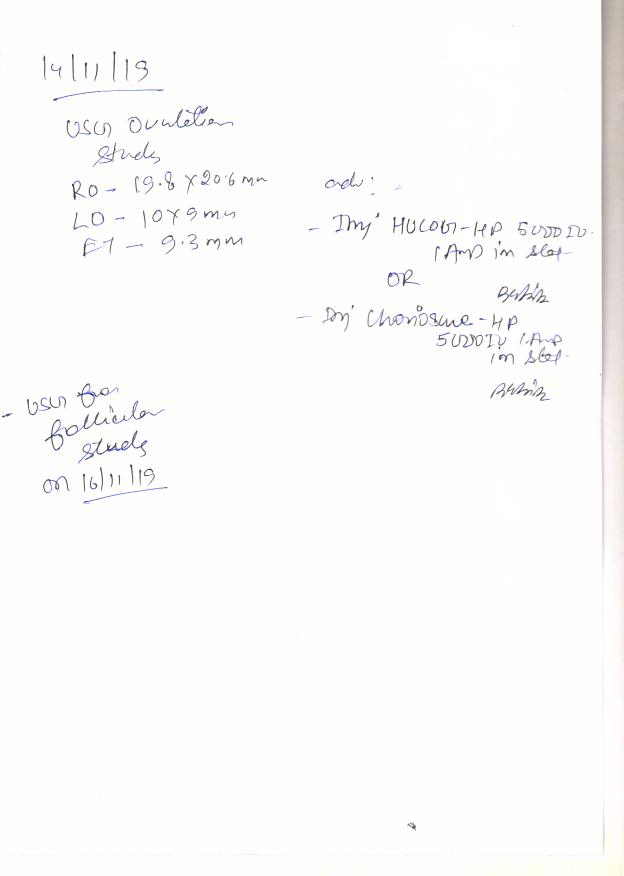 14/11/19
USG Ovulation
Study
RO - 19.8 X 20.6 mm
LO - 10 X 9 mm
ET - 9.3 mm
adv: -
- Inj HUCOG-HP 5000 IU
1 Amp im stat
OR
- Inj Chorisure-HP
5000 IU 1 Amp
im stat
- USG for
follicular
study
on 16/11/19